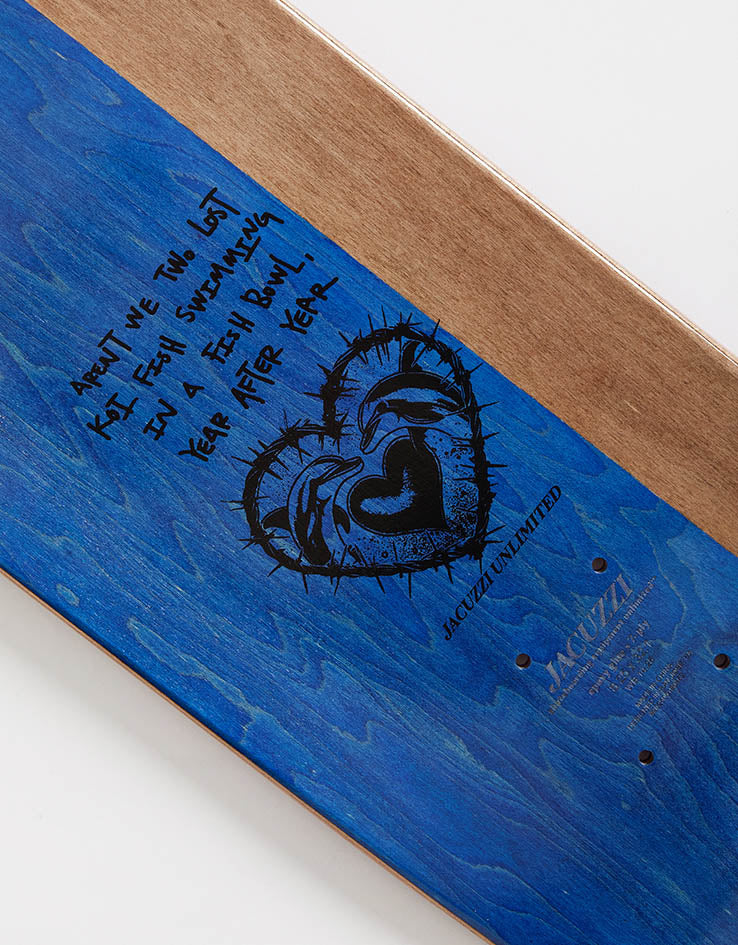 ARENT WE TWO LOST
KOI FISH SWIMMING
IN A FISH BOWL,
YEAR AFTER YEAR
JACUZZI UNLIMITED
JACUZZI